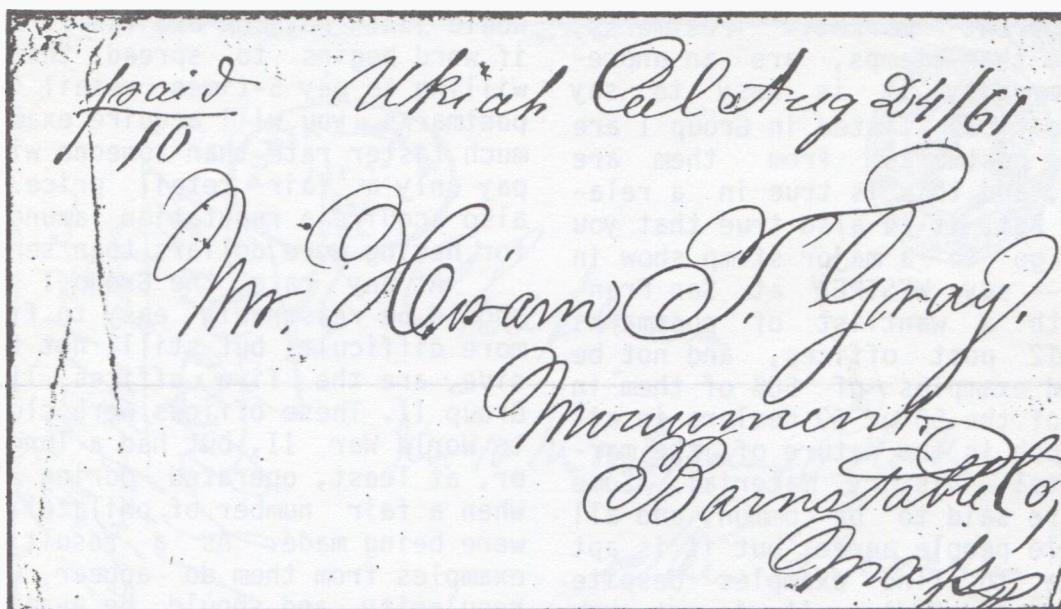 paid Ukiah Cal Aug 24/61
10
Mr. Hiram C. Gray.
Monument.
Barnstable Co
Mass